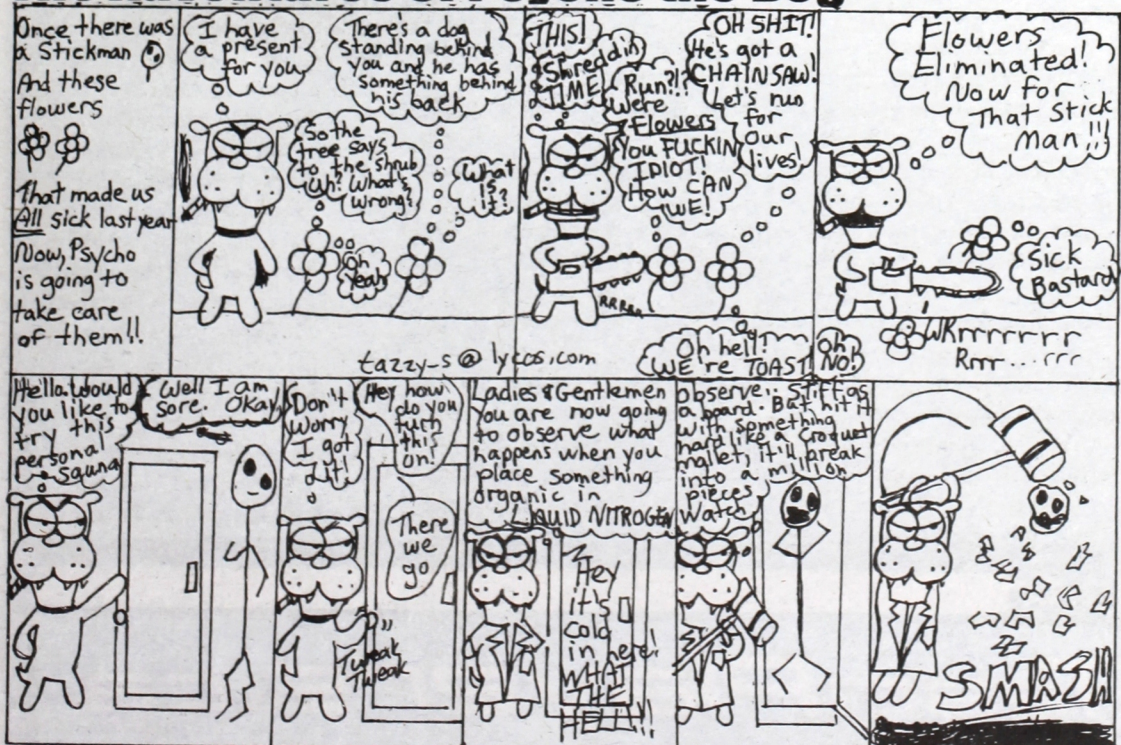 Once there was
a Stickman
And these
flowers
That made us
All sick last year
Now, Psycho
is going to
take care
of them!!
I have
a present
for you
There's a dog
standing behind
you and he has
something behind
his back
So the
tree says
to the shrub
Uh? What's
wrong?
What
is it?
Oh
Yeah
THIS!
Shreddin
TIME
OH SHIT!
He's got a
CHAINSAW!
Let's run
for
our
lives!
Run?!?
We're
Flowers
You FUCKIN
IDIOT!
How CAN
WE!
RRRRR
Oh hell!
We're TOAST!
Flowers
Eliminated!
Now for
That Stick
Man!!
Sick
Bastard
Oh
NO!
WKrrrrrrr
Rrr....rrr
tazzy-s@lycos.com
Hello. Would
you like to
try this
personal
Sauna
Well I am
sore. Okay.
Don't
Worry
I got
it!
Hey how
do you
turn
this
on!
There
we
go
Tweak
Tweak
Ladies & Gentlemen
you are now going
to observe what
happens when you
place something
organic in
LIQUID NITROGEN
Hey
it's
cold
in here!
WHAT
THE
HELL!!
Observe: Stiff as
a board. But, hit it
with something
hard like a Croquet
mallet, it'll break
into a million
pieces
Watch
SMASH